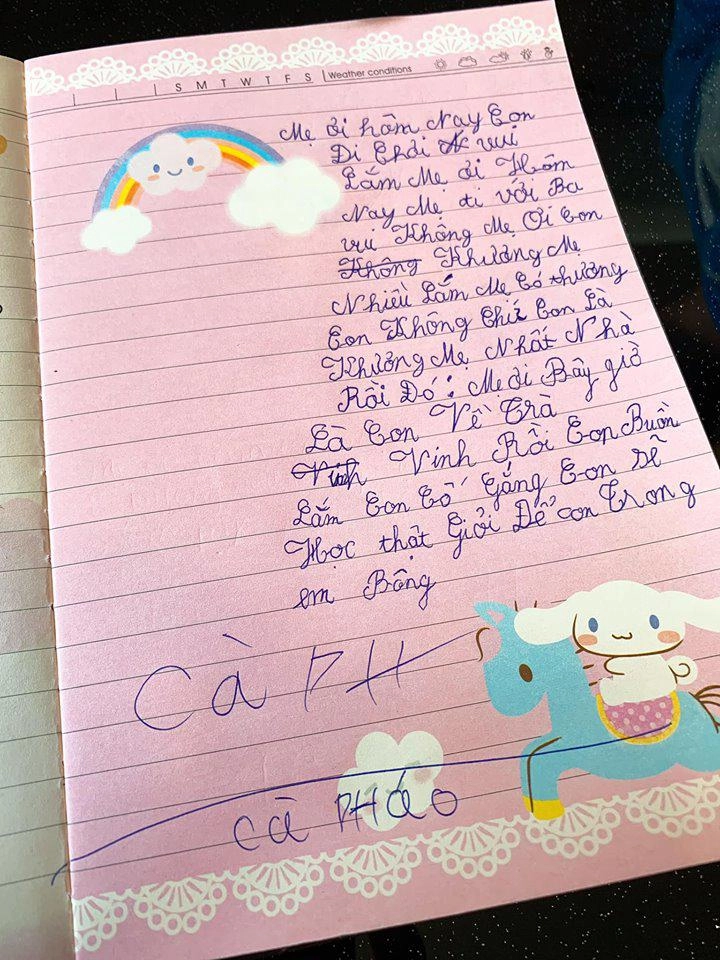 S M T W T F S Weather conditions
Mẹ ơi hôm Nay Con
Đi Chơi vui
Lắm Mẹ ơi Hôm
Nay Mẹ đi với Ba
vui Không Mẹ Ơi Con
Không Thương Mẹ
Nhiều Lắm Mẹ Có thương
Con Không Chứ Con Là
Thương Mẹ Nhất Nhà
Rồi Đó! Mẹ ơi Bây giờ
Là Con Về Trà
Vinh Vinh Rồi Con Buồn
Lắm Con Cố Gắng Con sẽ
Học thật Giỏi Để con Trong
em Bông
CÀ PH
CÀ PHÁO